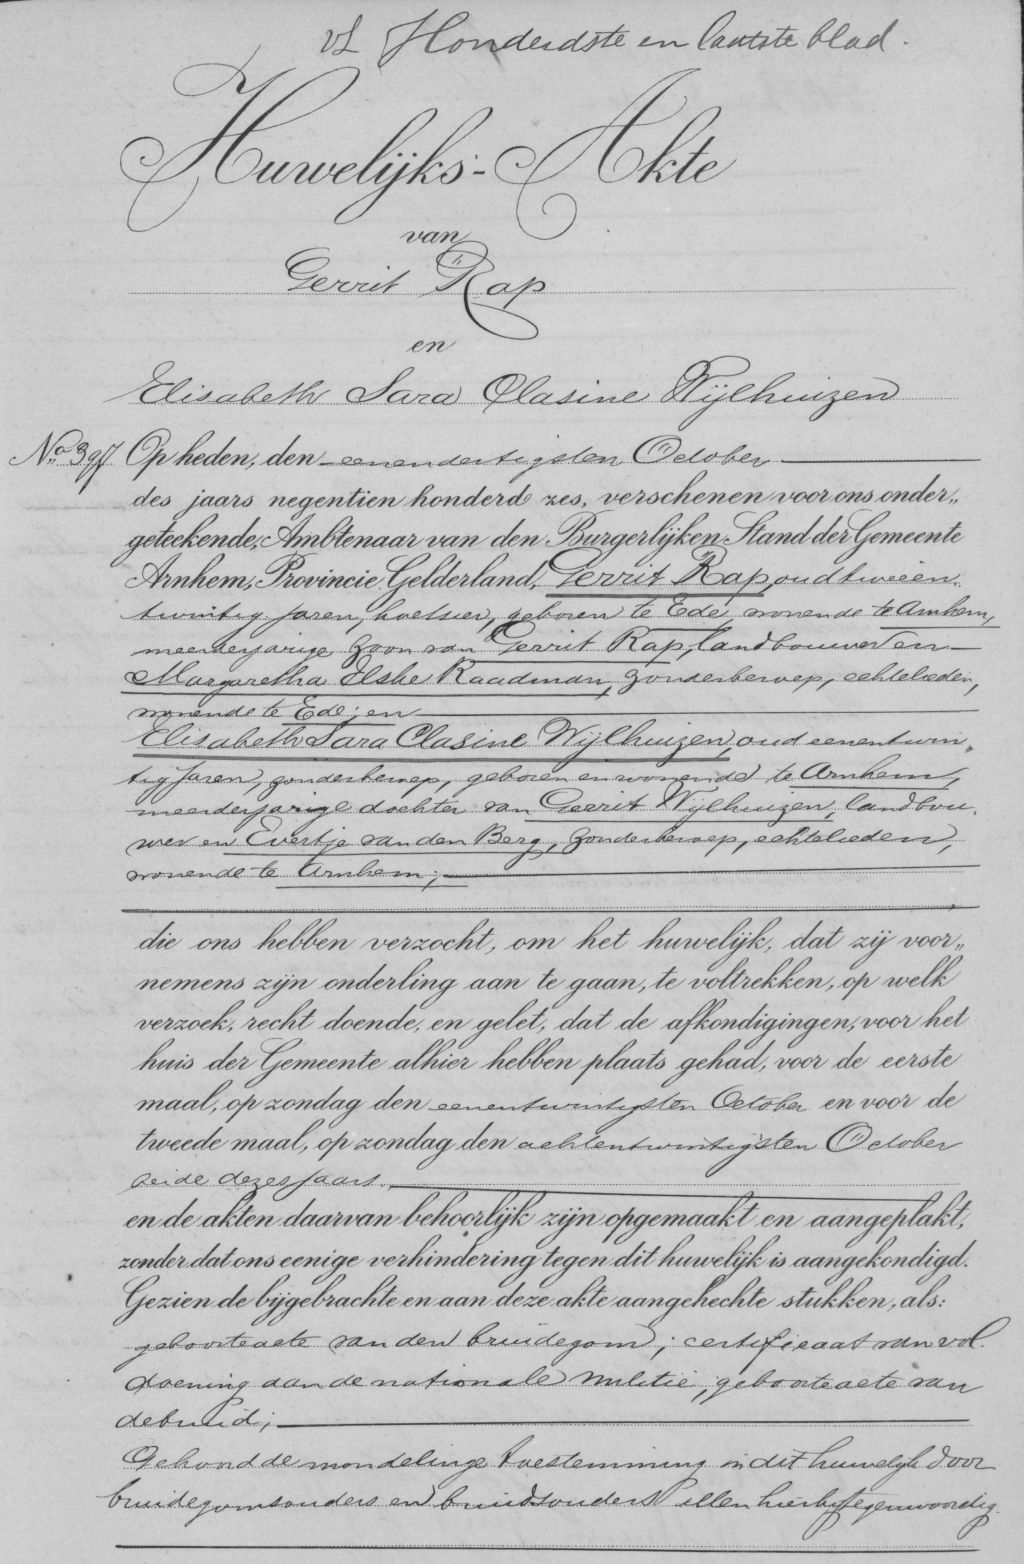 Honderdste en laatste blad.
Huwelijks-Akte
van
Gerrit Rap
en
Elisabeth Sara Clasine Wijlhuizen
No. 397 Op heden, den eenendertigsten October
des jaars negentien honderd zes, verschenen voor ons onder„
geteekende, Ambtenaar van den Burgerlijken Stand der Gemeente
Arnhem, Provincie Gelderland, Gerrit Rap, oud tweeen
twintig jaren, koetsier, geboren te Ede, wonende te Arnhem,
meerderjarige zoon van Gerrit Rap, landbouwer en
Margaretha Elske Raadman, zonder beroep, echtelieden,
wonende te Ede; en
Elisabeth Sara Clasine Wijlhuizen, oud eenentwin„
tig jaren, zonder beroep, geboren en wonende te Arnhem,
meerderjarige dochter van Gerrit Wijlhuizen, landbou„
wer en Evertje van den Berg, zonder beroep, echtelieden,
wonende te Arnhem;
die ons hebben verzocht, om het huwelijk, dat zij voor„
nemens zijn onderling aan te gaan, te voltrekken, op welk
verzoek, recht doende, en gelet, dat de afkondigingen, voor het
huis der Gemeente alhier hebben plaats gehad, voor de eerste
maal, op zondag den eenentwintigsten October en voor de
tweede maal, op zondag den achtentwintigsten October
beide dezes jaars.
en de akten daarvan behoorlijk zijn opgemaakt en aangeplakt,
zonder dat ons eenige verhindering tegen dit huwelijk is aangekondigd.
Gezien de bijgebrachte en aan deze akte aangehechte stukken, als:
geboorteacte van den bruidegom; certificaat van vol„
doening aan de nationale militie, geboorteacte van
de bruid;
Gehoord de mondelinge toestemming in dit huwelijk door
bruidegomsouders en bruidsouders allen hierbij tegenwoordig.